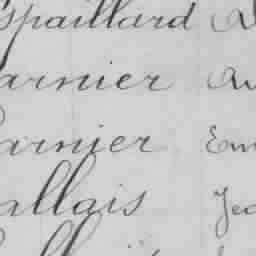 spaillard
arnier
arnier Em
allais Jea